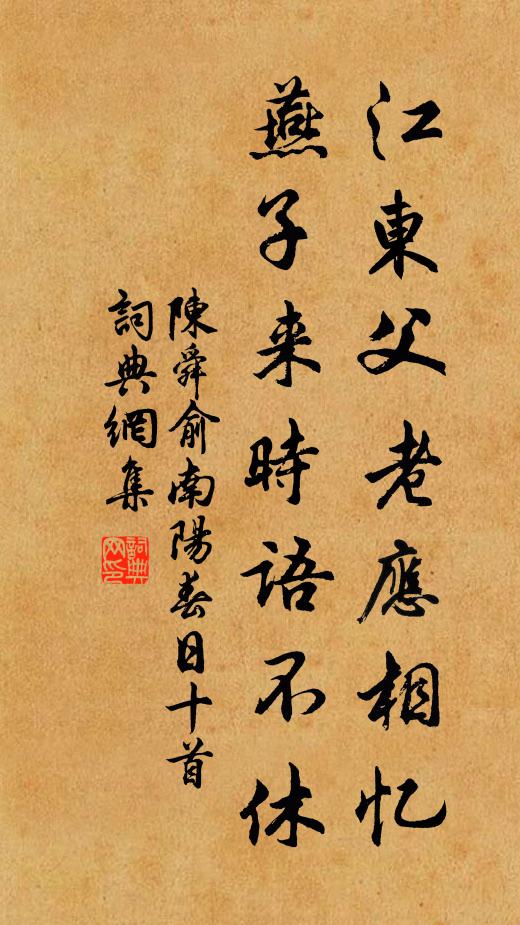 江東父老應相忆
燕子来時語不休
陳舜俞南陽春日十首
詞典網集
詞典网印